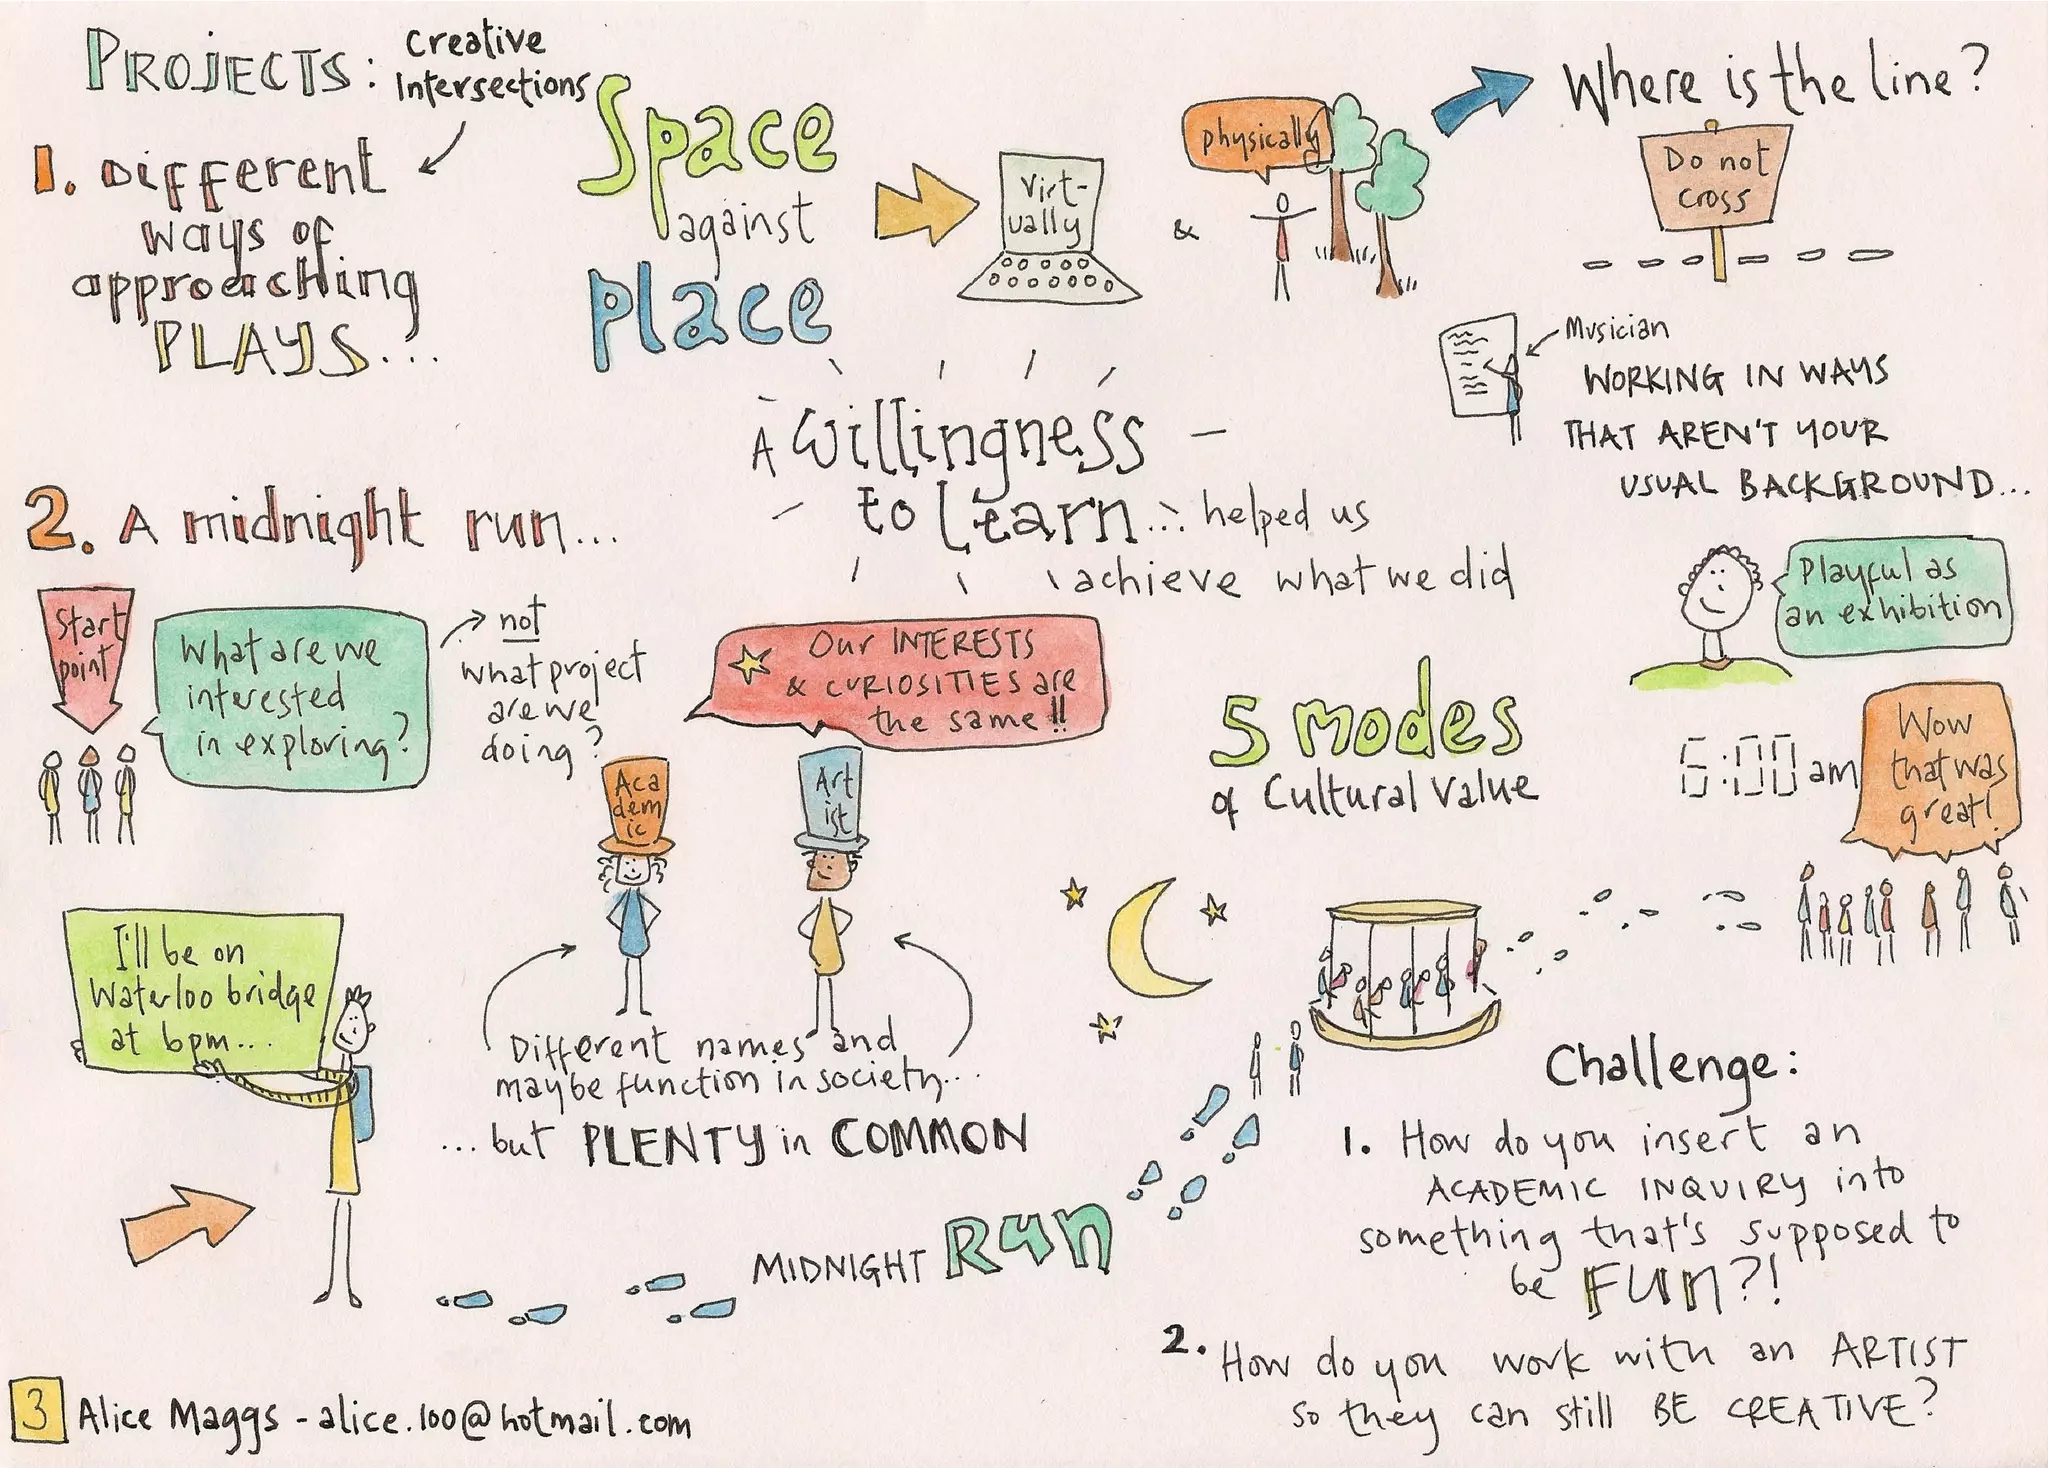 PROJECTS:
Creative
Intersections
1. Different
ways of
approaching
PLAYS...
Space
against
place
Virt-
ually
&
physically
Where is the line?
Do not
cross
Musician
WORKING IN WAYS
THAT AREN'T YOUR
USUAL BACKGROUND...
A Willingness
to Learn... helped us
achieve what we did
2. A midnight run...
Start
point
What are we
interested
in exploring?
not
what project
are we
doing?
Our INTERESTS
& CURIOSITIES are
the same!!
Aca
dem
ic
Art
ist
Different names and
maybe function in society...
...but PLENTY in COMMON
5 modes
of Cultural Value
Playful as
an exhibition
6:00 am
Wow
that was
great!
I'll be on
Waterloo bridge
at 6pm...
MIDNIGHT Run
Challenge:
1. How do you insert an
ACADEMIC INQUIRY into
something that's supposed to
be FUN?!
2. How do you work with an ARTIST
so they can still BE CREATIVE?
3 Alice Maggs - alice.100@hotmail.com